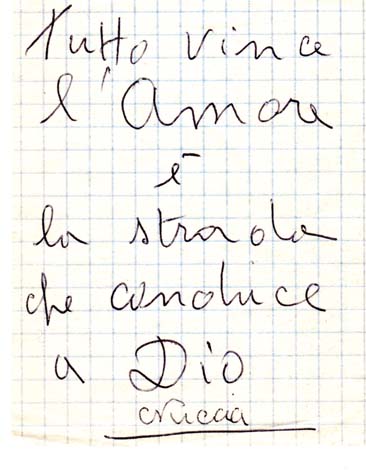 Tutto vince
l'Amore
è
la strada
che conduce
a Dio